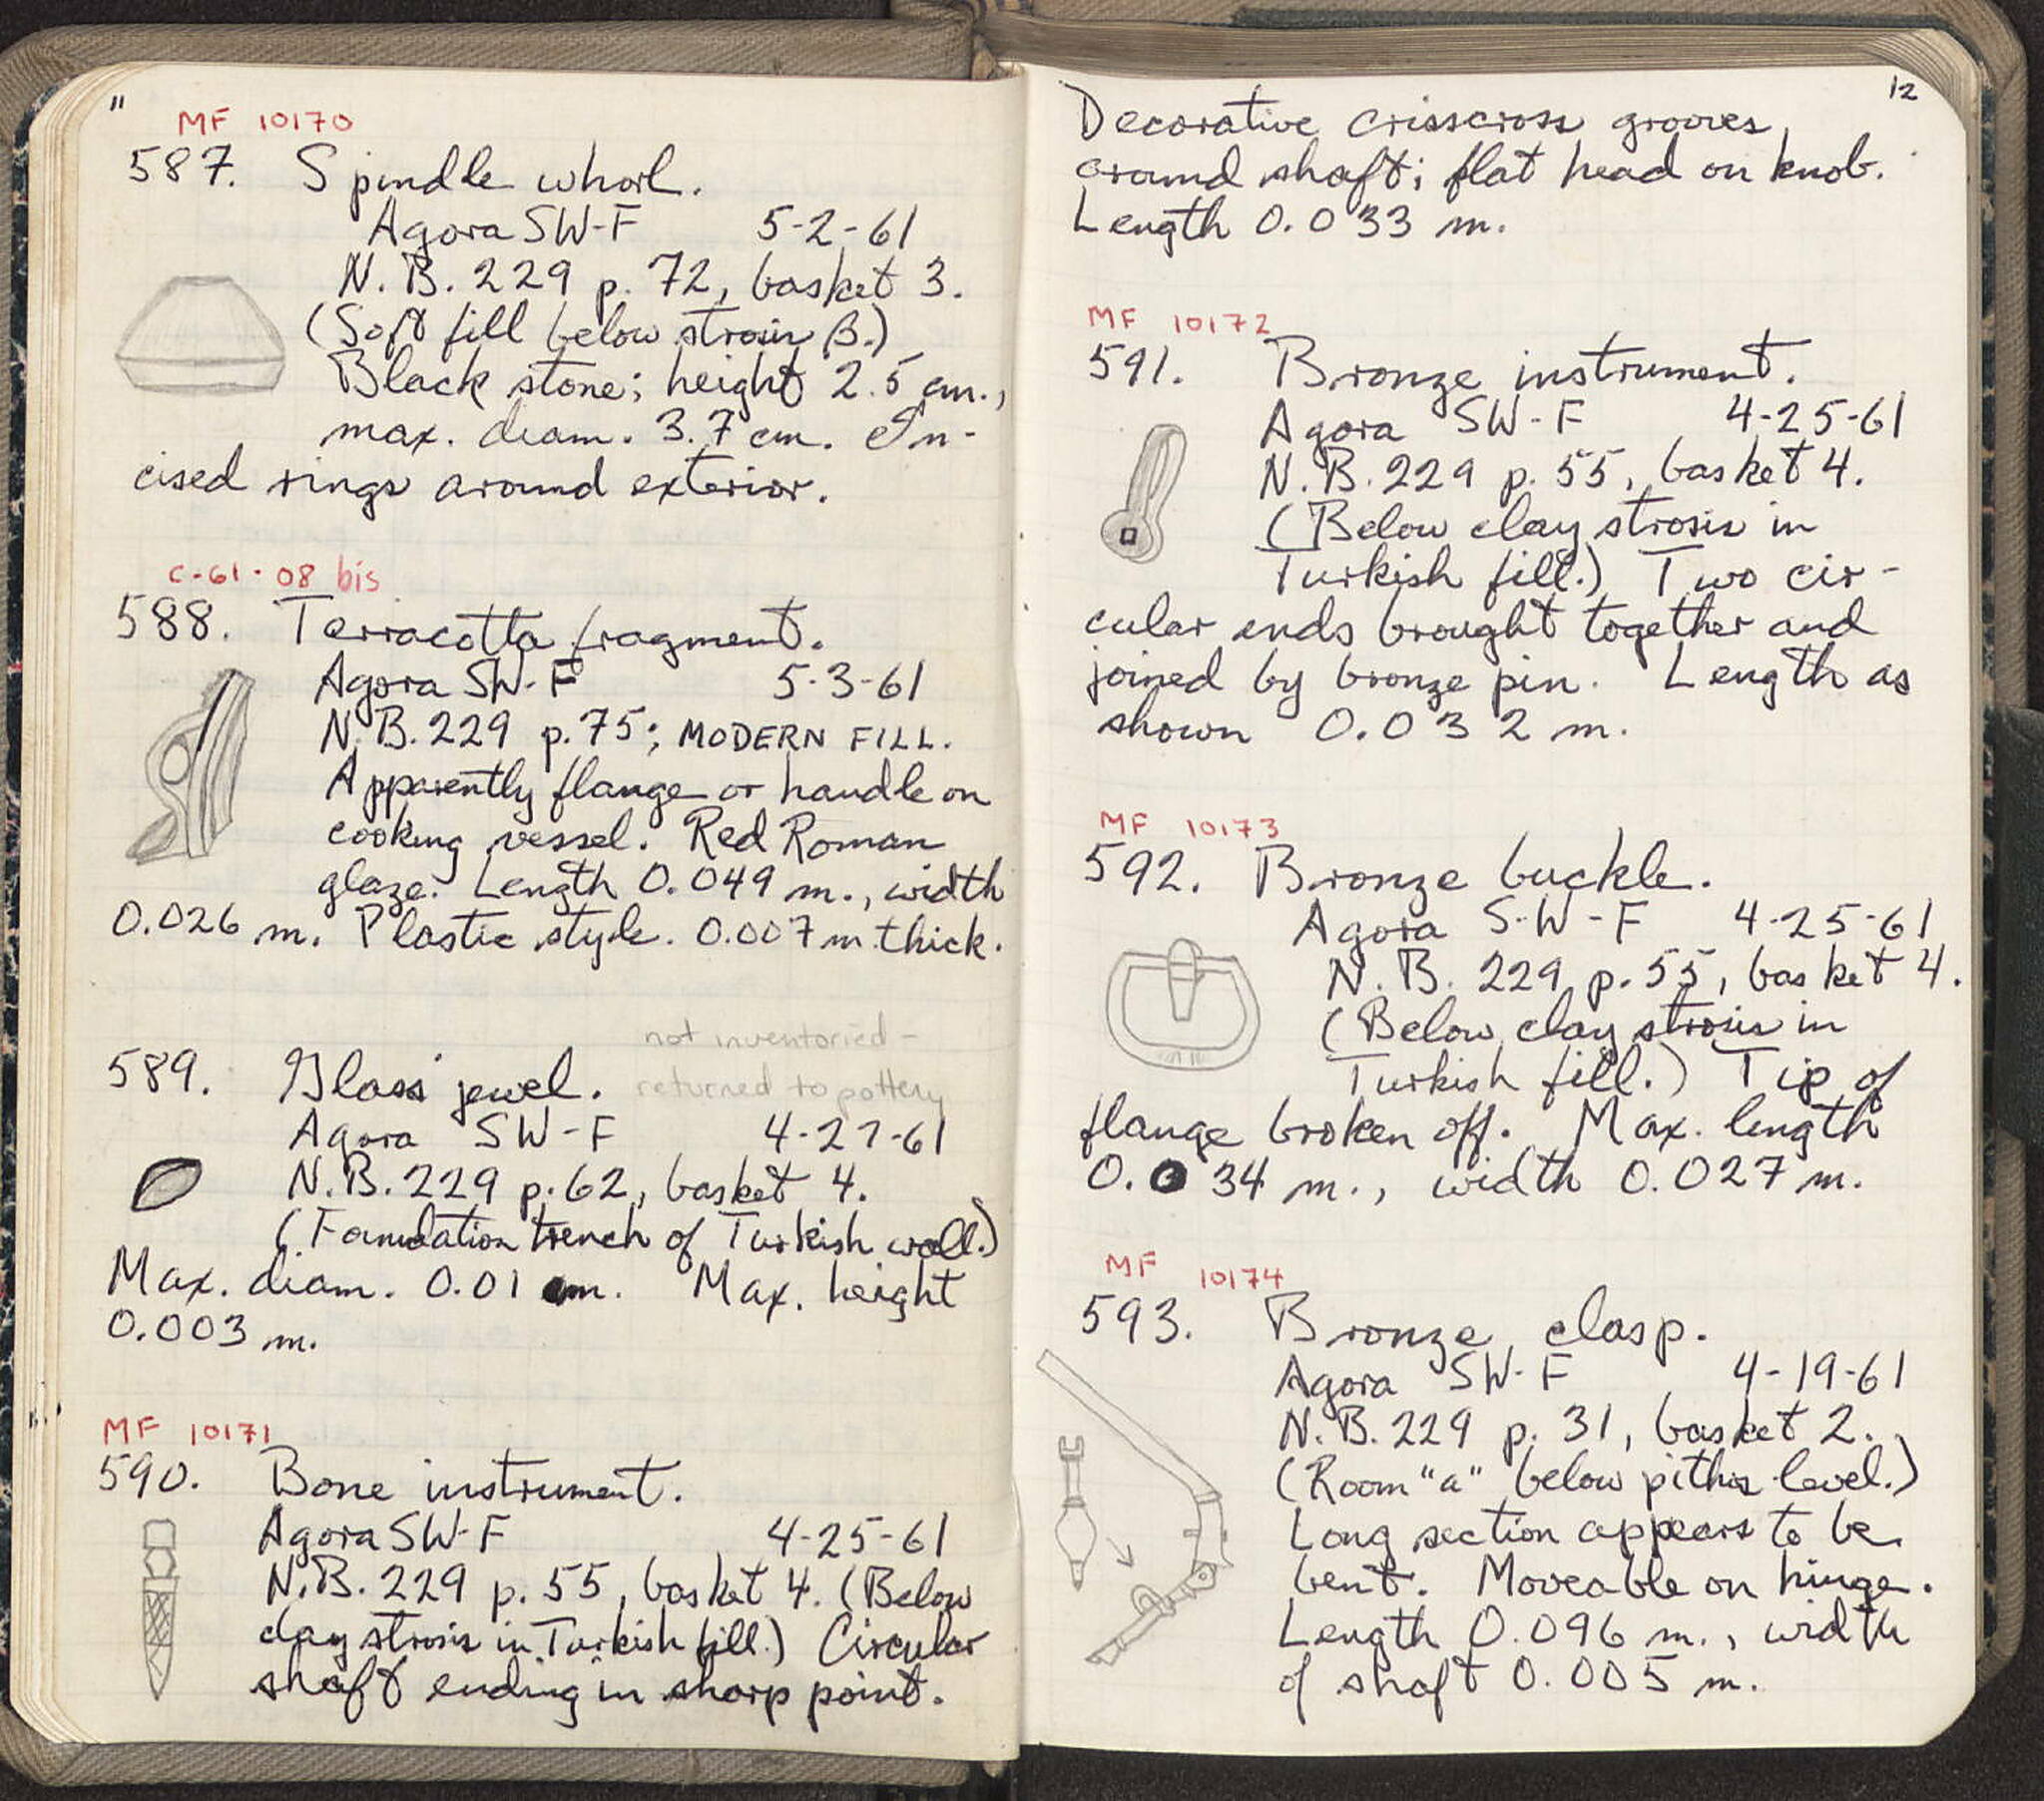 11
MF 10170
587. Spindle whorl.
Agora SW-F 5-2-61
N.B. 229 p. 72, basket 3.
(Soft fill below strosis β.)
Black stone; height 2.5 cm.,
max. diam. 3.7 cm. In-
cised rings around exterior.
C-61-08 bis
588. Terracotta fragment.
Agora SW-F 5-3-61
N.B. 229 p. 75; MODERN FILL.
Apparently flange or handle on
cooking vessel. Red Roman
glaze. Length 0.049 m., width
0.026 m. Plastic style. 0.007 m thick.
not inventoried -
589. Glass jewel. returned to pottery
Agora SW-F 4-27-61
N.B. 229 p. 62, basket 4.
(Foundation trench of Turkish wall.)
Max. diam. 0.01 m. Max. height
0.003 m.
MF 10171
590. Bone instrument.
Agora SW-F 4-25-61
N.B. 229 p. 55, basket 4. (Below
clay strosis in Turkish fill.) Circular
shaft ending in sharp point.
12
Decorative crisscross grooves
around shaft; flat head on knob.
Length 0.033 m.
MF 10172
591. Bronze instrument.
Agora SW-F 4-25-61
N.B. 229 p. 55, basket 4.
(Below clay strosis in
Turkish fill.) Two cir-
cular ends brought together and
joined by bronze pin. Length as
shown 0.032 m.
MF 10173
592. Bronze buckle.
Agora S-W-F 4-25-61
N.B. 229 p. 55, basket 4.
(Below clay strosis in
Turkish fill.) Tip of
flange broken off. Max. length
0.034 m., width 0.027 m.
MF 10174
593. Bronze clasp.
Agora SW-F 4-19-61
N.B. 229 p. 31, basket 2.
(Room "a" below pithos level.)
Long section appears to be
bent. Moveable on hinge.
Length 0.096 m., width
of shaft 0.005 m.